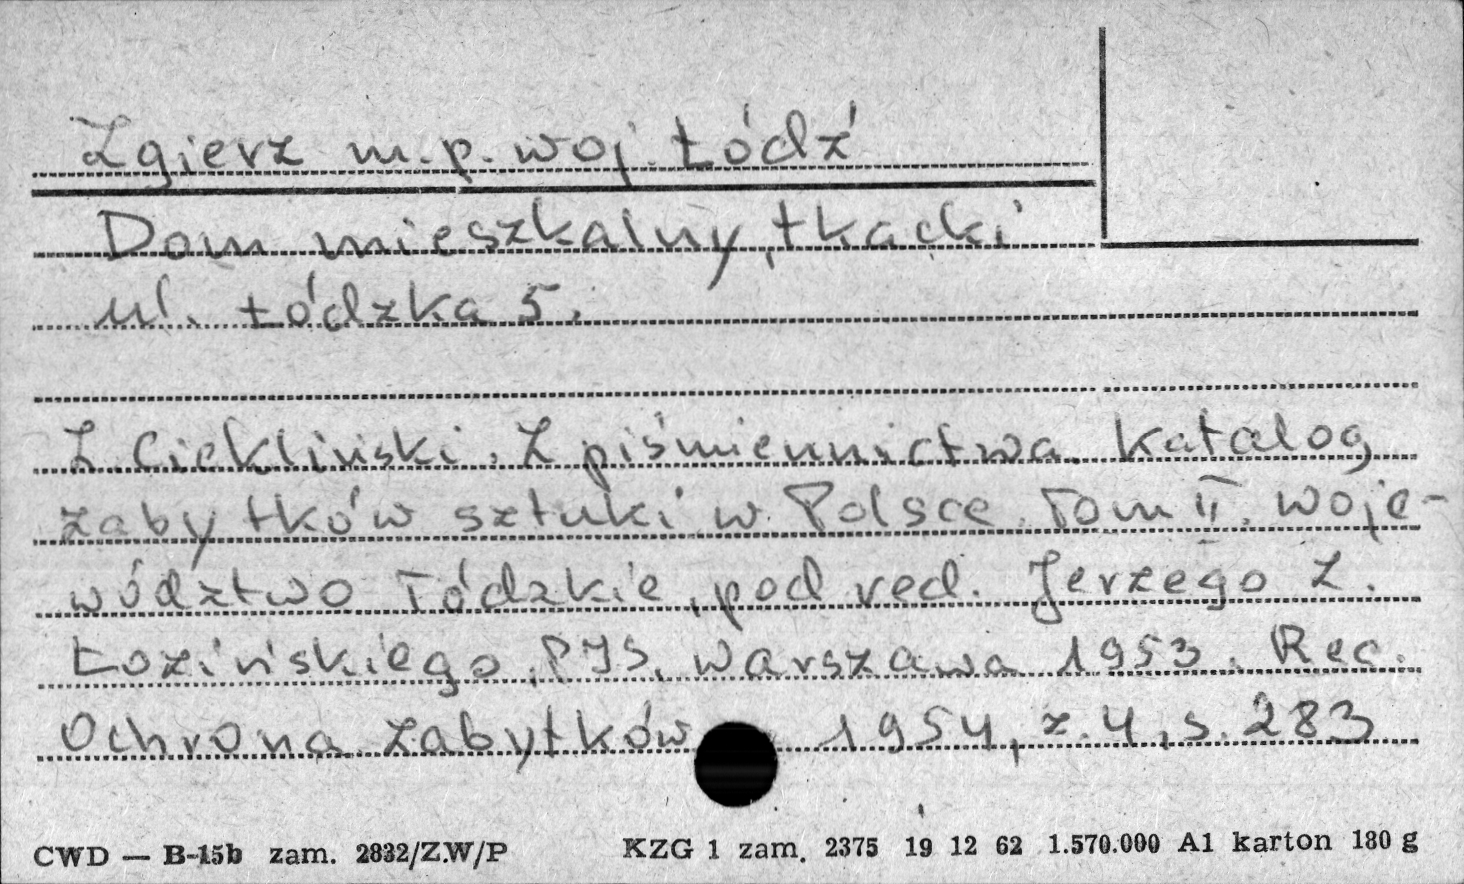 Zgierz m.p. woj. Łódź
Dom mieszkalny, tkacki
ul. Łódzka 5.
Z. Ciekliński. Z piśmiennictwa. Katalog
zabytków sztuki w Polsce. Tom II. Woje-
wództwo Łódzkie, pod red. Jerzego Z.
Łozińskiego, PIS, Warszawa 1953. Rec.
Ochrona Zabytków 1954, z. 4, s. 283
CWD — B-15b zam. 2832/Z.W/P KZG 1 zam. 2375 19 12 62 1.570.000 A1 karton 180 g